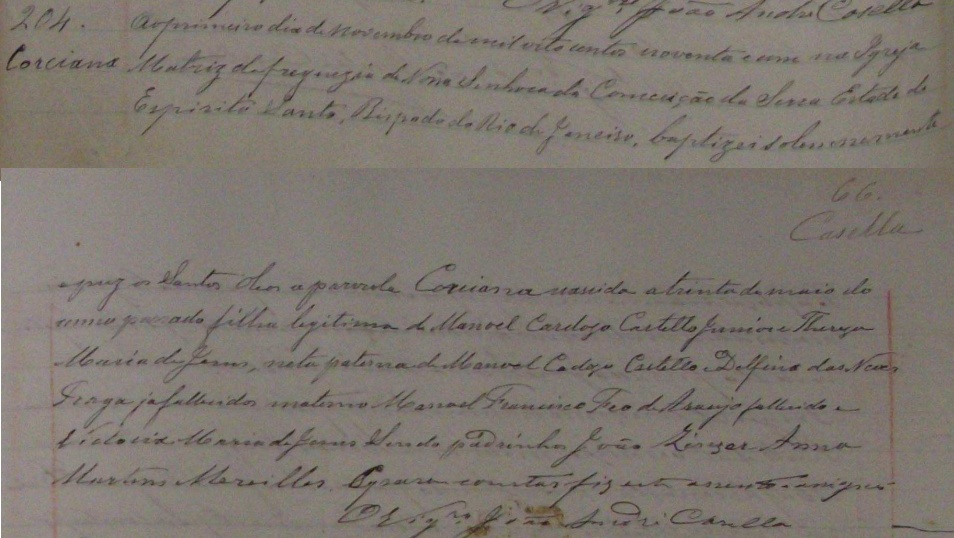 Vigro João Andre Casella
204.
Corciana
Ao primeiro dia de novembro de mil oito centos e noventa e um na Igreja
Matriz de freguezia de Nossa Senhora da Conceição da Serra Estado do
Espirito Santo, Bispado do Rio de Janeiro, baptizei solemnemente
66.
Casella
e puz os Santos Oleos a parvola Corciana nascida a trinta de maio do
anno passado filha legitima de Manoel Cardozo Castello Junior e Thereza
Maria de Jesus, neta paterna de Manoel Cadozo Castello e Delfina das Neves
Fraga ja fallecidos materno Manoel Francisco Feo de Araujo fallecido e
Victocia Maria de Jesus Sendo padrinhos João Anna
Martins Mereilles. E para constar fiz este assento e assignei
O Vigro João Andre Casella